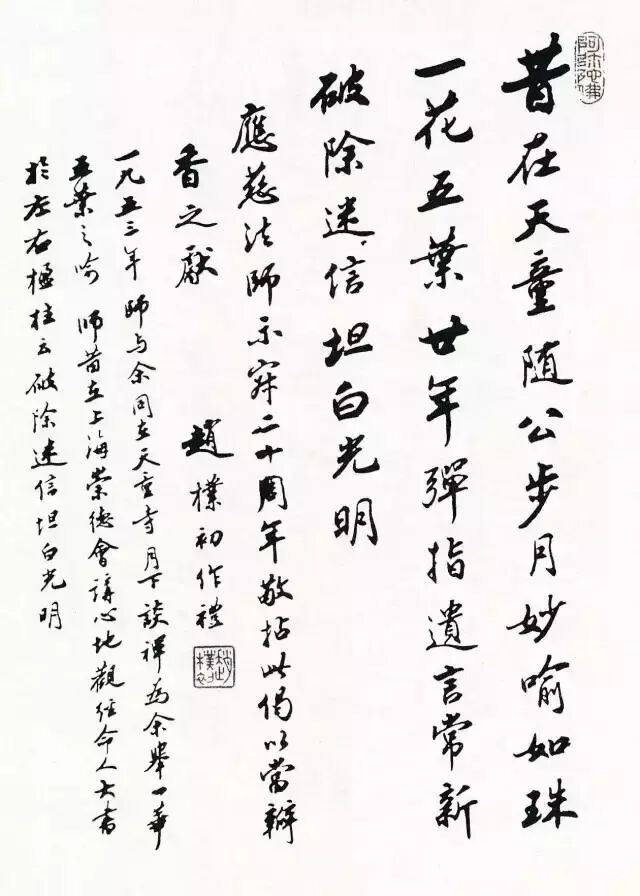 阿彌陀佛
昔在天童随公步月妙喻如珠
一花五葉廿年彈指遺言常新
破除迷信坦白光明
應慈法師示寂二十周年敬拈此偈以當瓣
香之獻
趙樸初作禮
趙樸初
一九五三年師与余同在天童寺月下談禪為余舉一華
五葉之喻師昔在上海崇德會講心地觀經命人大書
於左右楹柱云破除迷信坦白光明